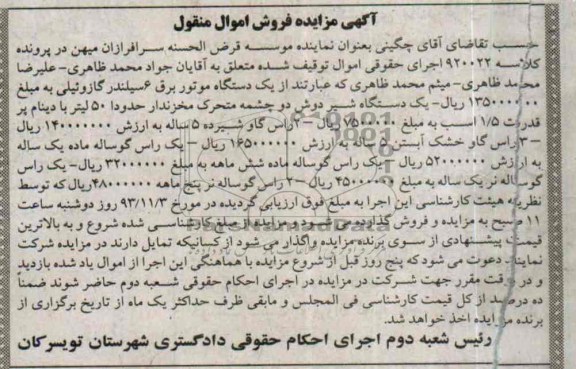 آگهی مزایده فروش اموال منقول
حسب تقاضای آقای چگینی بعنوان نماینده موسسه قرض الحسنه سرافرازان میهن در پرونده
کلاسه ۹۲۰۰۲۲ اجرای حقوقی اموال توقیف شده متعلق به آقایان جواد محمد ظاهری- علیرضا
محمد ظاهری- میثم محمد ظاهری که عبارتند از یک دستگاه موتور برق ۶سیلندر گازوئیلی به مبلغ
ریال- یک دستگاه شیر دوش دو چشمه متحرک مخزندار حدودا ۵۰ لیتر با دینام پر
قدرت ۱/۵ اسب به مبلغ ریال -۲راس گاو شیرده ۵ساله به ارزش ۱۴۰۰۰۰۰۰۰ ریال
-۳راس گاو خشک آبستن ساله به ارزش ۱۶۵۰۰۰۰۰۰ ریال - یک راس گوساله ماده یک ساله
به ارزش ۵۲۰۰۰۰۰۰ ریال -یک راس گوساله ماده شش ماهه به مبلغ ۳۲۰۰۰۰۰۰ ریال- یک راس
گوساله نر یک ساله به مبلغ ۴۵۰۰۰۰۰۰ ریال-۲راس گوساله نر پنج ماهه ۴۸۰۰۰۰۰۰ریال که توسط
نظریه هیئت کارشناسی این اجرا به مبلغ فوق ارزیابی گردیده در مورخ ۹۳/۱۱/۳ روز دوشنبه ساعت
۱۱ صبح به مزایده و فروش گذارده می شود و مزایده از مبلغ کارشناسی شده شروع و به بالاترین
قیمت پیشنهادی از سوی برنده مزایده واگذار می شود از کسانیکه تمایل دارند در مزایده شرکت
نمایند دعوت می شود که پنج روز قبل از شروع مزایده با هماهنگی این اجرا از اموال یاد شده بازدید
و در وقت مقرر جهت شرکت در مزایده در اجرای احکام حقوقی شعبه دوم حاضر شوند ضمناً
ده درصد از کل قیمت کارشناسی فی المجلس و مابقی ظرف حداکثر یک ماه از تاریخ برگزاری از
برنده مزایده اخذ خواهد شد.
رئیس شعبه دوم اجرای احکام حقوقی دادگستری شهرستان تویسرکان